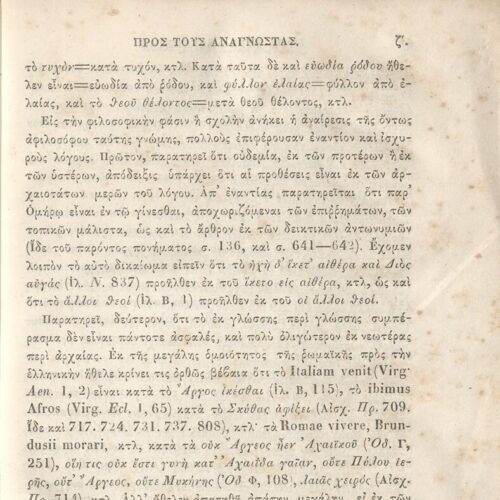 ΠΡΟΣ ΤΟΥΣ ΑΝΑΓΝΩΣΤΑΣ. ζ΄.
τὸ τυχὸν=κατὰ τυχόν, κτλ. Κατὰ ταῦτα δὲ καὶ εὐωδία ῥόδου ἤθε-
λεν εἶναι=εὐωδία ἀπὸ ῥόδου, καὶ φύλλον ἐλαίας=φύλλον ἀπὸ ἐ-
λαίας, καὶ τὸ θεοῦ θέλοντος=μετὰ θεοῦ θέλοντος, κτλ.
Εἰς τὴν φιλοσοφικὴν φάσιν ἢ σχολὴν ἀνήκει ἡ ἀναίρεσις τῆς ὄντως
ἀφιλοσόφου ταύτης γνώμης, πολλοὺς ἐπιφέρουσαν ἐναντίον καὶ ἰσχυ-
ροὺς λόγους. Πρῶτον, παρατηρεῖ ὅτι οὐδεμία, ἐκ τῶν προτέρων ἢ ἐκ
τῶν ὑστέρων, ἀπόδειξις ὑπάρχει ὅτι αἱ προθέσεις εἶναι ἐκ τῶν ἀρ-
χαιοτάτων μερῶν τοῦ λόγου. Ἀπ' ἐναντίας παρατηρεῖται ὅτι παρ'
Ὁμήρῳ εἶναι ἐν τῷ γίνεσθαι, ἀποχωριζόμεναι τῶν ἐπιῤῥημάτων, τῶν
τοπικῶν μάλιστα, ὡς καὶ τὸ ἄρθρον ἐκ τῶν δεικτικῶν ἀντωνυμιῶν
(Ἴδε τοῦ παρόντος πονήματος σ. 136, καὶ σ. 641—642). Ἔχομεν
λοιπὸν τὸ αὐτὸ δικαίωμα εἰπεῖν ὅτι τὸ ἠχὴ δ' ἵκετ' αἰθέρα καὶ Διὸς
αὐγὰς (Ἰλ. Ν. 837) προῆλθεν ἐκ τοῦ ἵκετο εἰς αἰθέρα, κτλ, ὡς καὶ
ὅτι τὸ ἄλλοι θεοὶ (Ἰλ. Β, 1) προῆλθεν ἐκ τοῦ οἱ ἄλλοι θεοί.
Παρατηρεῖ, δεύτερον, ὅτι τὸ ἐκ γλώσσης περὶ γλώσσης συμπέ-
ρασμα δὲν εἶναι πάντοτε ἀσφαλές, καὶ πολὺ ὀλιγώτερον ἐκ νεωτέρας
περὶ ἀρχαίας. Ἐκ τῆς μεγάλης ὁμοιότητος τῆς ῥωμαϊκῆς πρὸς τὴν
ἑλληνικὴν ἤθελε κρίνει τις ὀρθῶς βέβαια ὅτι τὸ Italiam venit (Virg.
Aen. 1, 2) εἶναι κατὰ τὸ Ἄργος ἱκέσθαι (Ἰλ. Β, 115), τὸ ibimus
Afros (Virg. Ecl. 1, 65) κατὰ τὸ Σκύθας ἀφίξει (Αἰσχ. Πρ. 709.
ἴδε καὶ 717. 724. 731. 737. 808), κτλ· τὰ Romae vivere, Brun-
dusii morari, κτλ, κατὰ τὰ οὐκ Ἄργεος ἦεν Ἀχαιϊκοῦ (Ὀδ. Γ,
251), οἵη τις οὐκ ἔστε γυνὴ κατ' Ἀχαιΐδα γαῖαν, οὔτε Πύλου ἱε-
ρῆς, οὔτ' Ἄργεος, οὔτε Μυκήνης (Ὀδ Φ, 108), λαιᾶς χειρὸς (Αἰσχ.
Πρ. 714), κτλ. Ἀλλ' ἤθελεν ἀπατηθῆ ἀπάτην μεγάλην, εἰ ἐκ τῶν